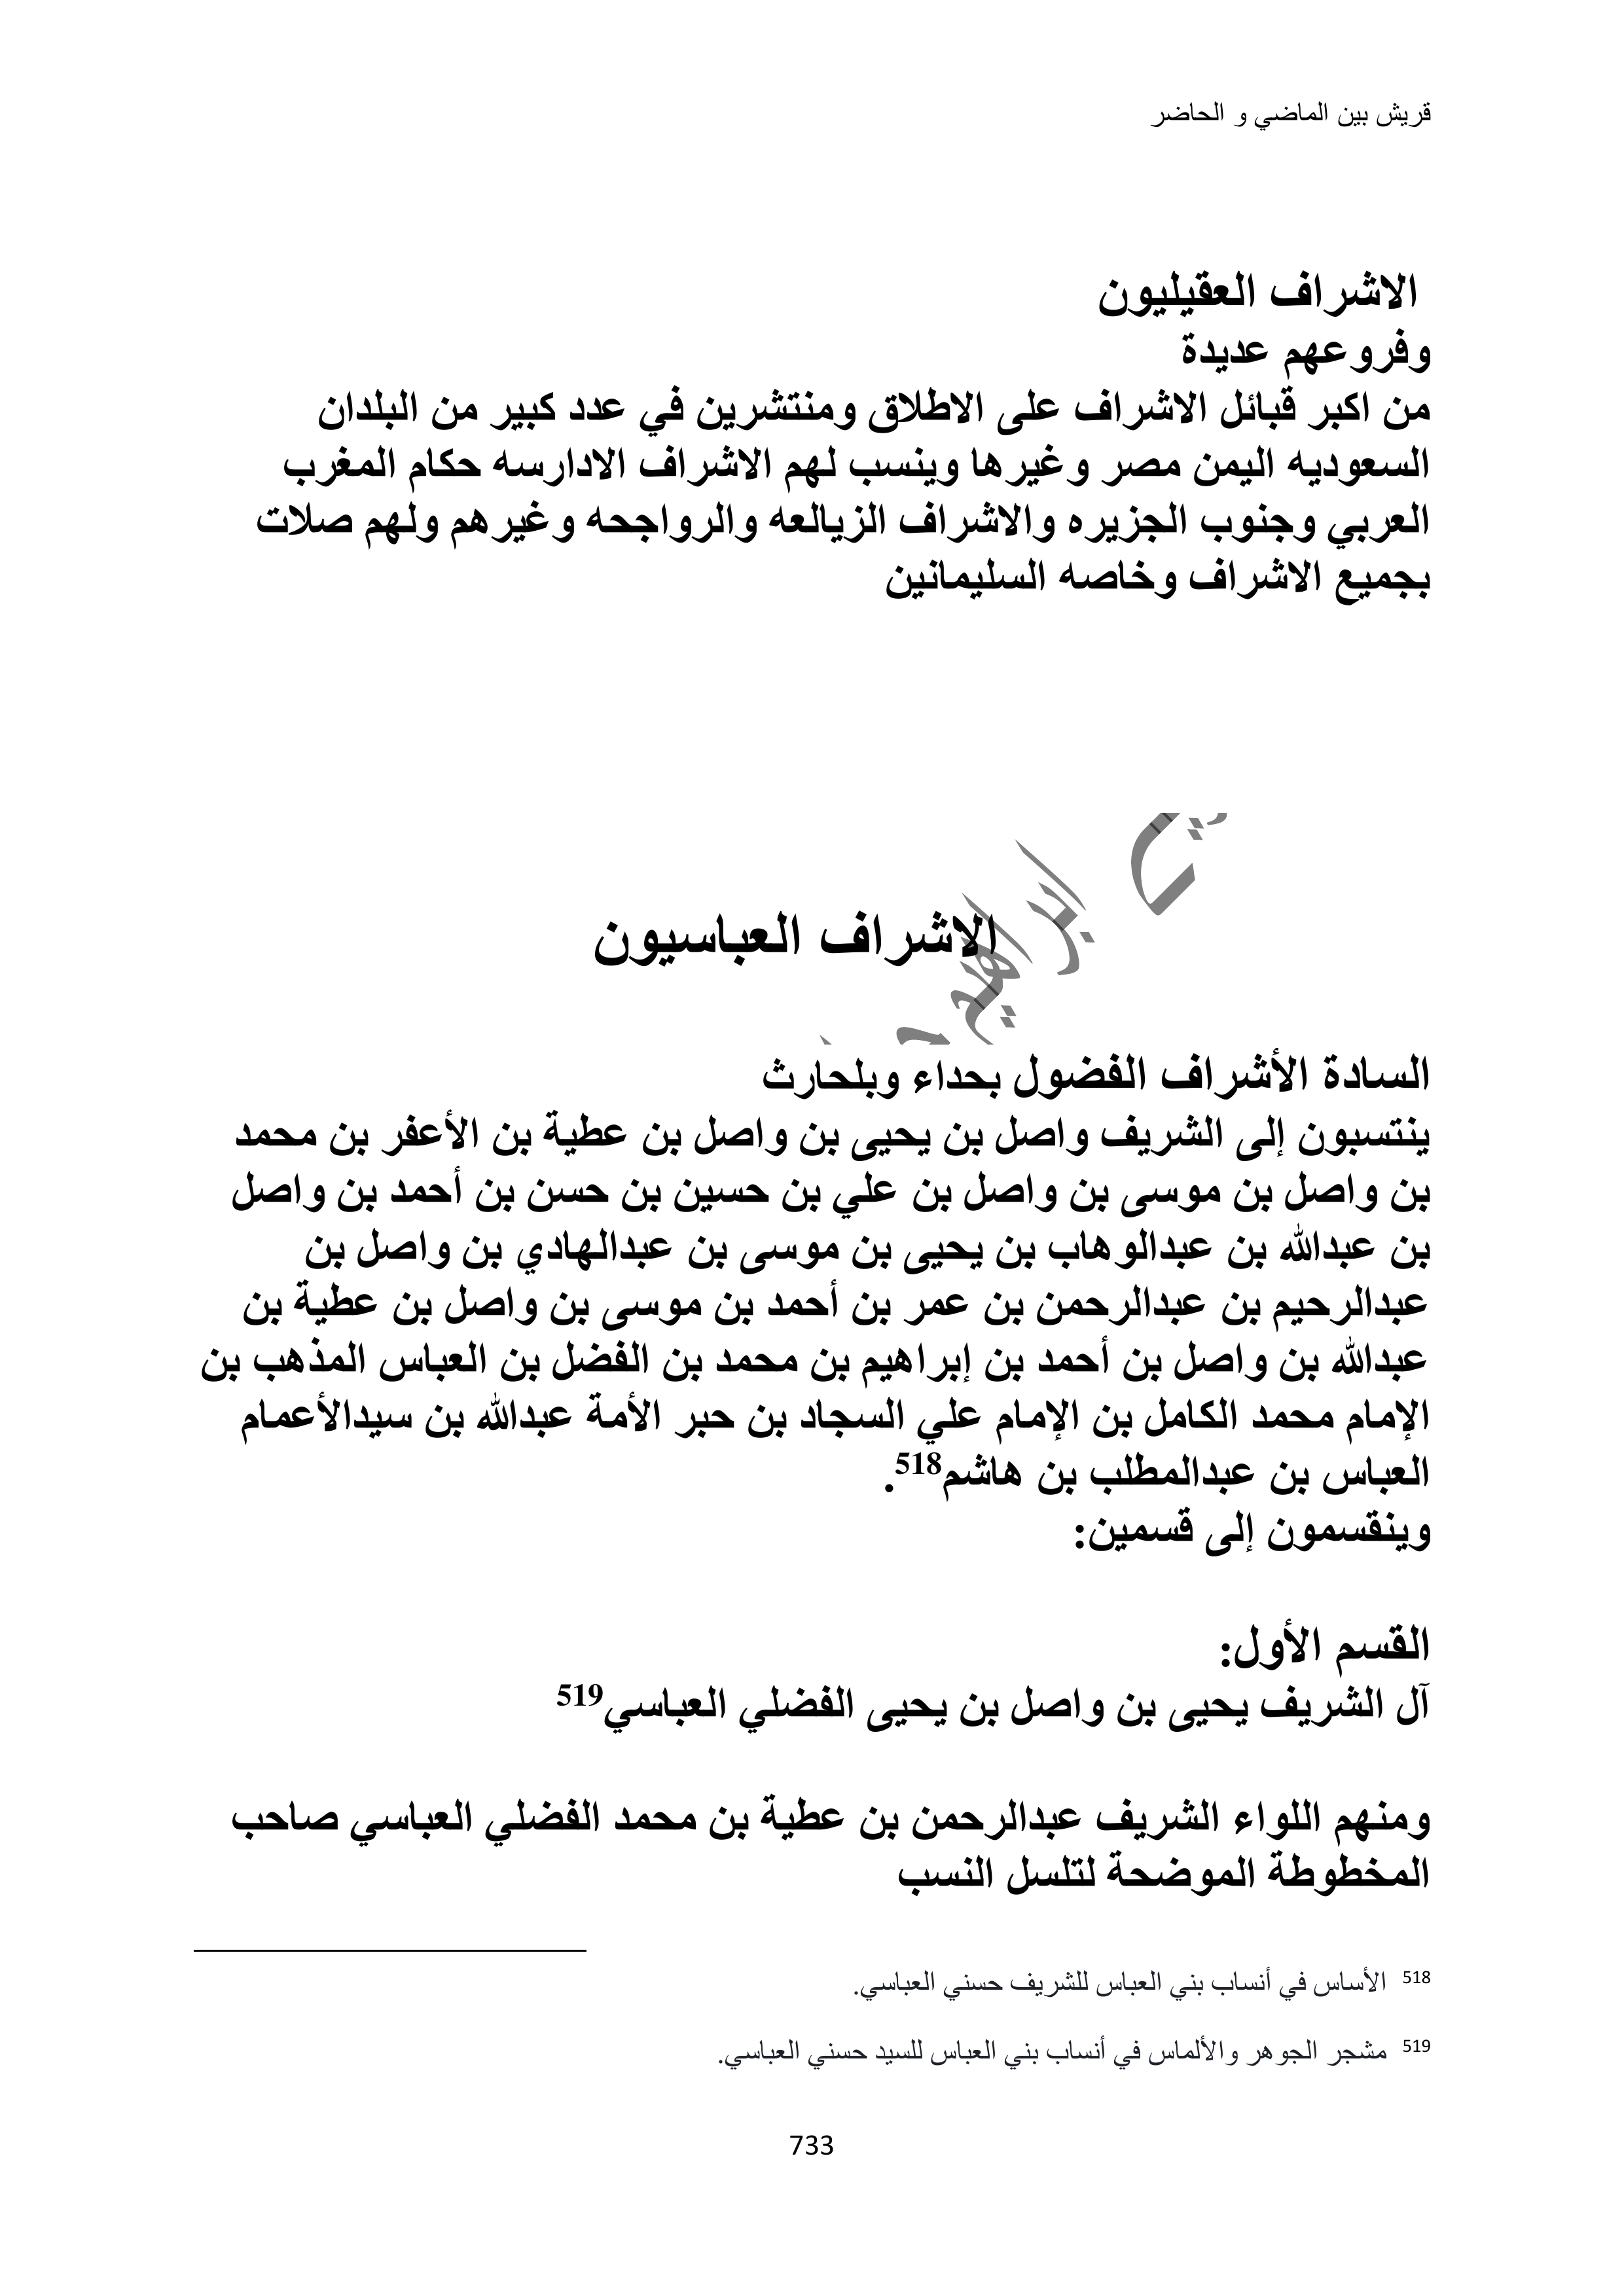 قريش بين الماضي و الحاضر
الاشراف العقيليون
وفروعهم عديدة
من اكبر قبائل الاشراف على الاطلاق ومنتشرين في عدد كبير من البلدان
السعوديه اليمن مصر وغيرها وينسب لهم الاشراف الادارسه حكام المغرب
العربي وجنوب الجزيره والاشراف الزيالعه والرواجحه وغيرهم ولهم صلات
بجميع الاشراف وخاصه السليمانين
الاشراف العباسيون
السادة الأشراف الفضول بحداء وبلحارث
ينتسبون إلى الشريف واصل بن يحيى بن واصل بن عطية بن الأعفر بن محمد
بن واصل بن موسى بن واصل بن علي بن حسين بن حسن بن أحمد بن واصل
بن عبدالله بن عبدالوهاب بن يحيى بن موسى بن عبدالهادي بن واصل بن
عبدالرحيم بن عبدالرحمن بن عمر بن أحمد بن موسى بن واصل بن عطية بن
عبدالله بن واصل بن أحمد بن إبراهيم بن محمد بن الفضل بن العباس المذهب بن
الإمام محمد الكامل بن الإمام علي السجاد بن حبر الأمة عبدالله بن سيدالأعمام
العباس بن عبدالمطلب بن هاشم518.
وينقسمون إلى قسمين:
القسم الأول:
آل الشريف يحيى بن واصل بن يحيى الفضلي العباسي519
ومنهم اللواء الشريف عبدالرحمن بن عطية بن محمد الفضلي العباسي صاحب
المخطوطة الموضحة لتلسل النسب
518 الأساس في أنساب بني العباس للشريف حسني العباسي.
519 مشجر الجوهر والألماس في أنساب بني العباس للسيد حسني العباسي.
733